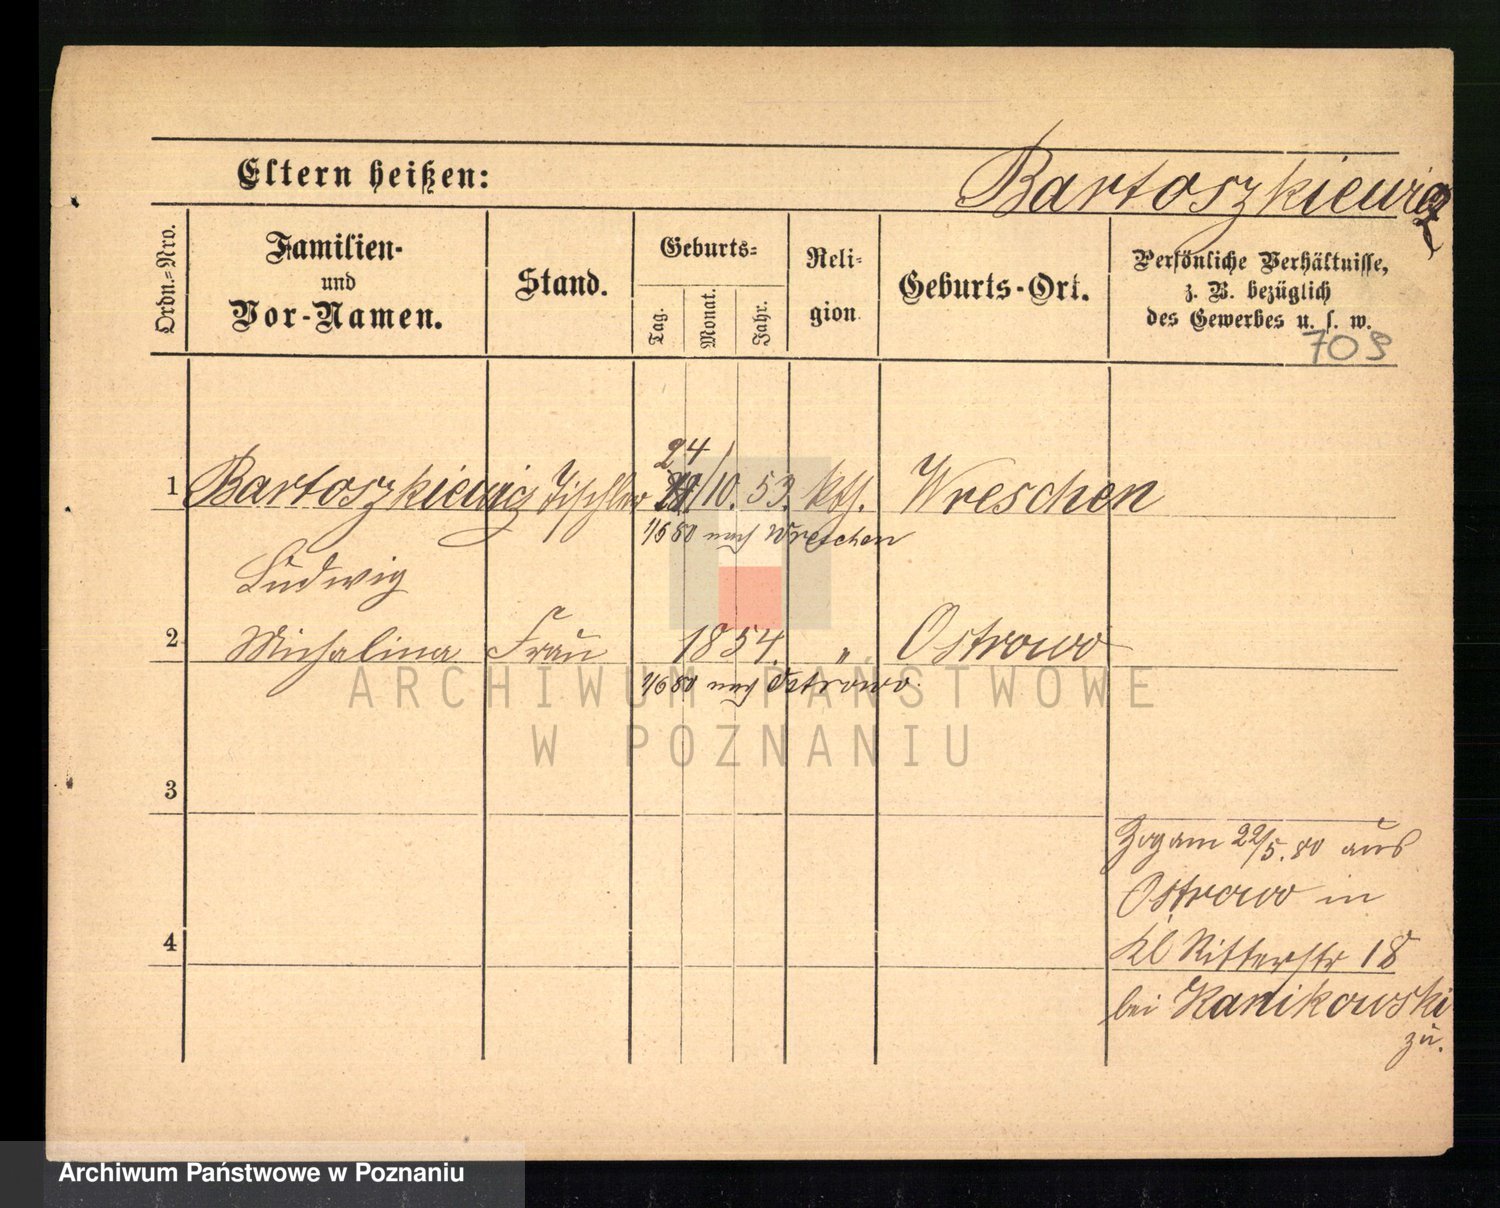 Eltern heißen:
Bartoszkiewicz
Ordn.-Nro.
Familien-
und
Vor-Namen.
Stand.
Geburts-
Tag.
Monat.
Jahr.
Reli-
gion
Geburts-Ort.
Persönliche Verhältnisse,
z. B. bezüglich
des Gewerbes u. s. w.
709
24
1 Bartoszkiewicz Tischler /10. 53. kth. Wreschen
1/6 80 nach Wreschen
Ludwig
2 Michalina Frau 1854. " Ostrowo
1/6 80 nach Ostrowo.
ARCHIWUM PAŃSTWOWE
W POZNANIU
3
Zog am 22/5. 80 aus
Ostrowo in
4
Kl Ritterstr 18
bei Kanikowski
zu.
Archiwum Państwowe w Poznaniu